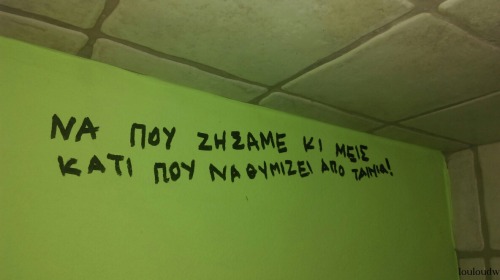 ΝΑ ΠΟΥ ΖΗΣΑΜΕ ΚΙ ΜΕΙΣ
ΚΑΤΙ ΠΟΥ ΝΑ ΘΥΜΙΖΕΙ ΑΠΟ ΤΑΙΝΙΑ!
louloudw